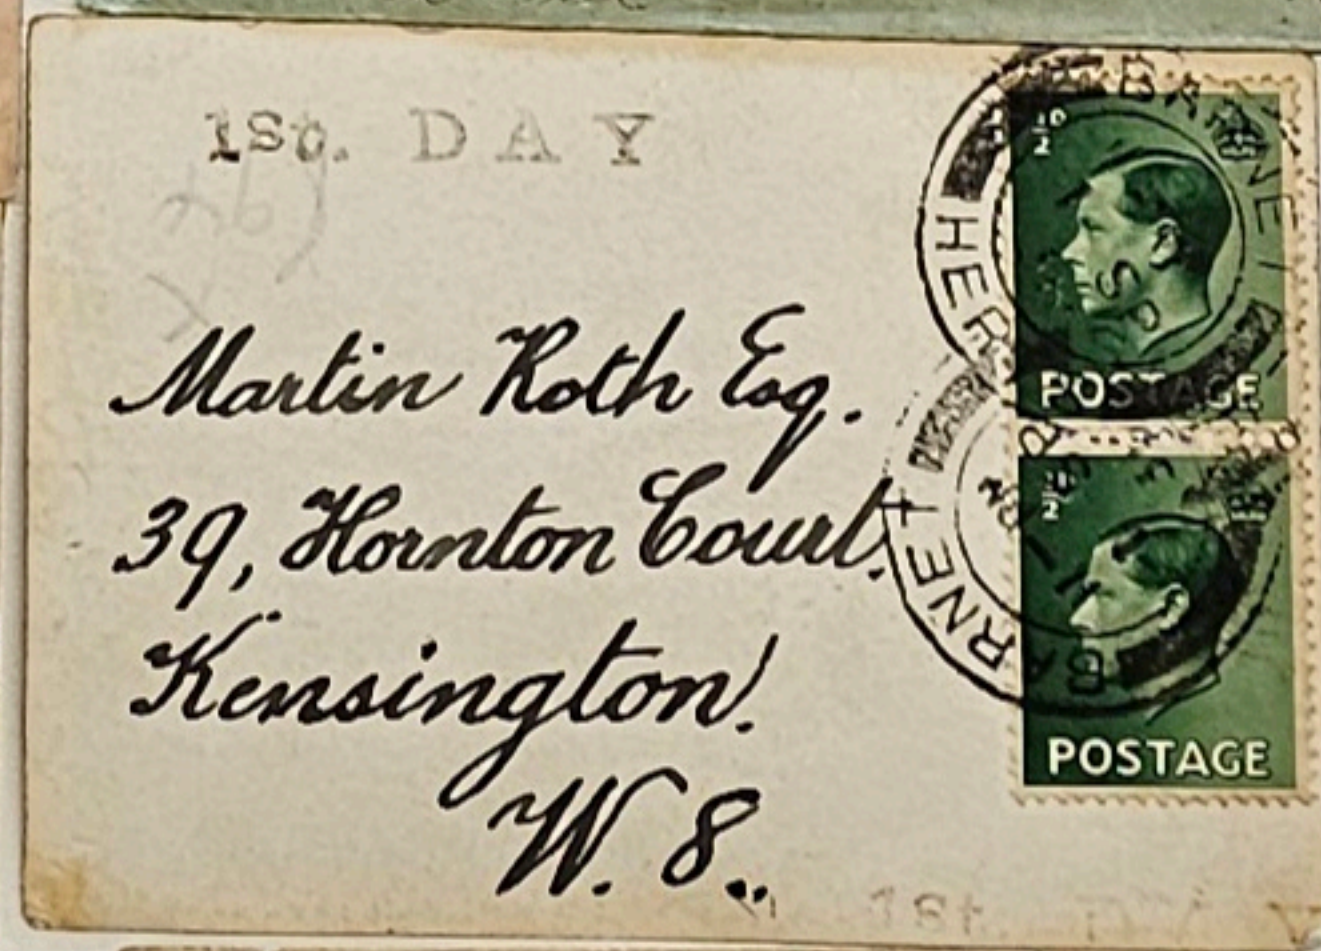 1st. DAY
Martin Roth Esq.
39, Hornton Court,
Kensington.
W. 8.
BARNET
HER
SP
POSTAGE
BARNET
POSTAGE
1st. DAY